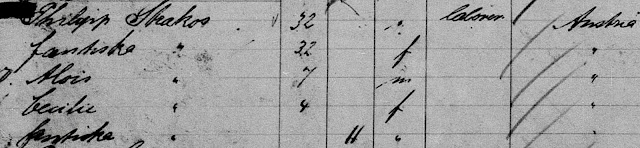 Philipp Strakos 32 " laborer Austria
Fantiska " 32 f "
Alois " 7 m "
Cecilie " 4 f "
Fantiska " 11 "